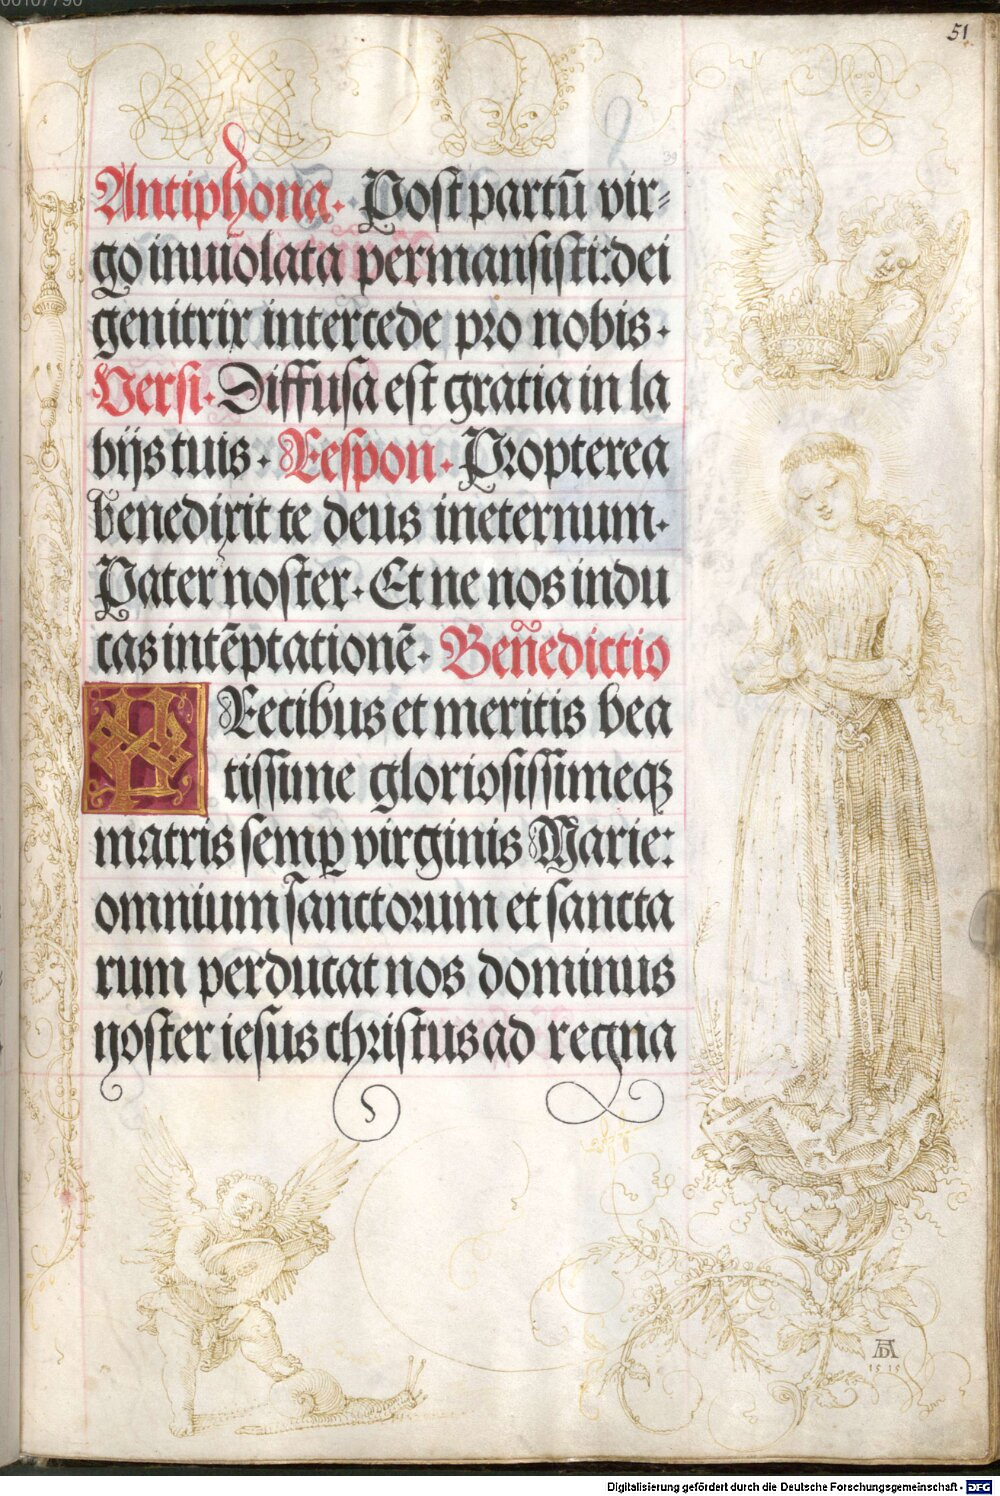 51
39
Antiphona. Post partū vir⸗
go inuiolata permansisti: dei
genitrix intercede pro nobis.
Versi. Diffusa est gratia in la
bijs tuis. Respon. Propterea
benedixit te deus ineternum.
Pater noster. Et ne nos indu
cas in tēptationē. Ben̄edictio
PRecibus et meritis bea
tissime gloriosissimeqꝫ
matris semꝑ virginis Marie:
omnium sanctorum et sancta
rum perducat nos dominus
noster iesus christus ad regna
AD
1515
Digitalisierung gefördert durch die Deutsche Forschungsgemeinschaft - DFG